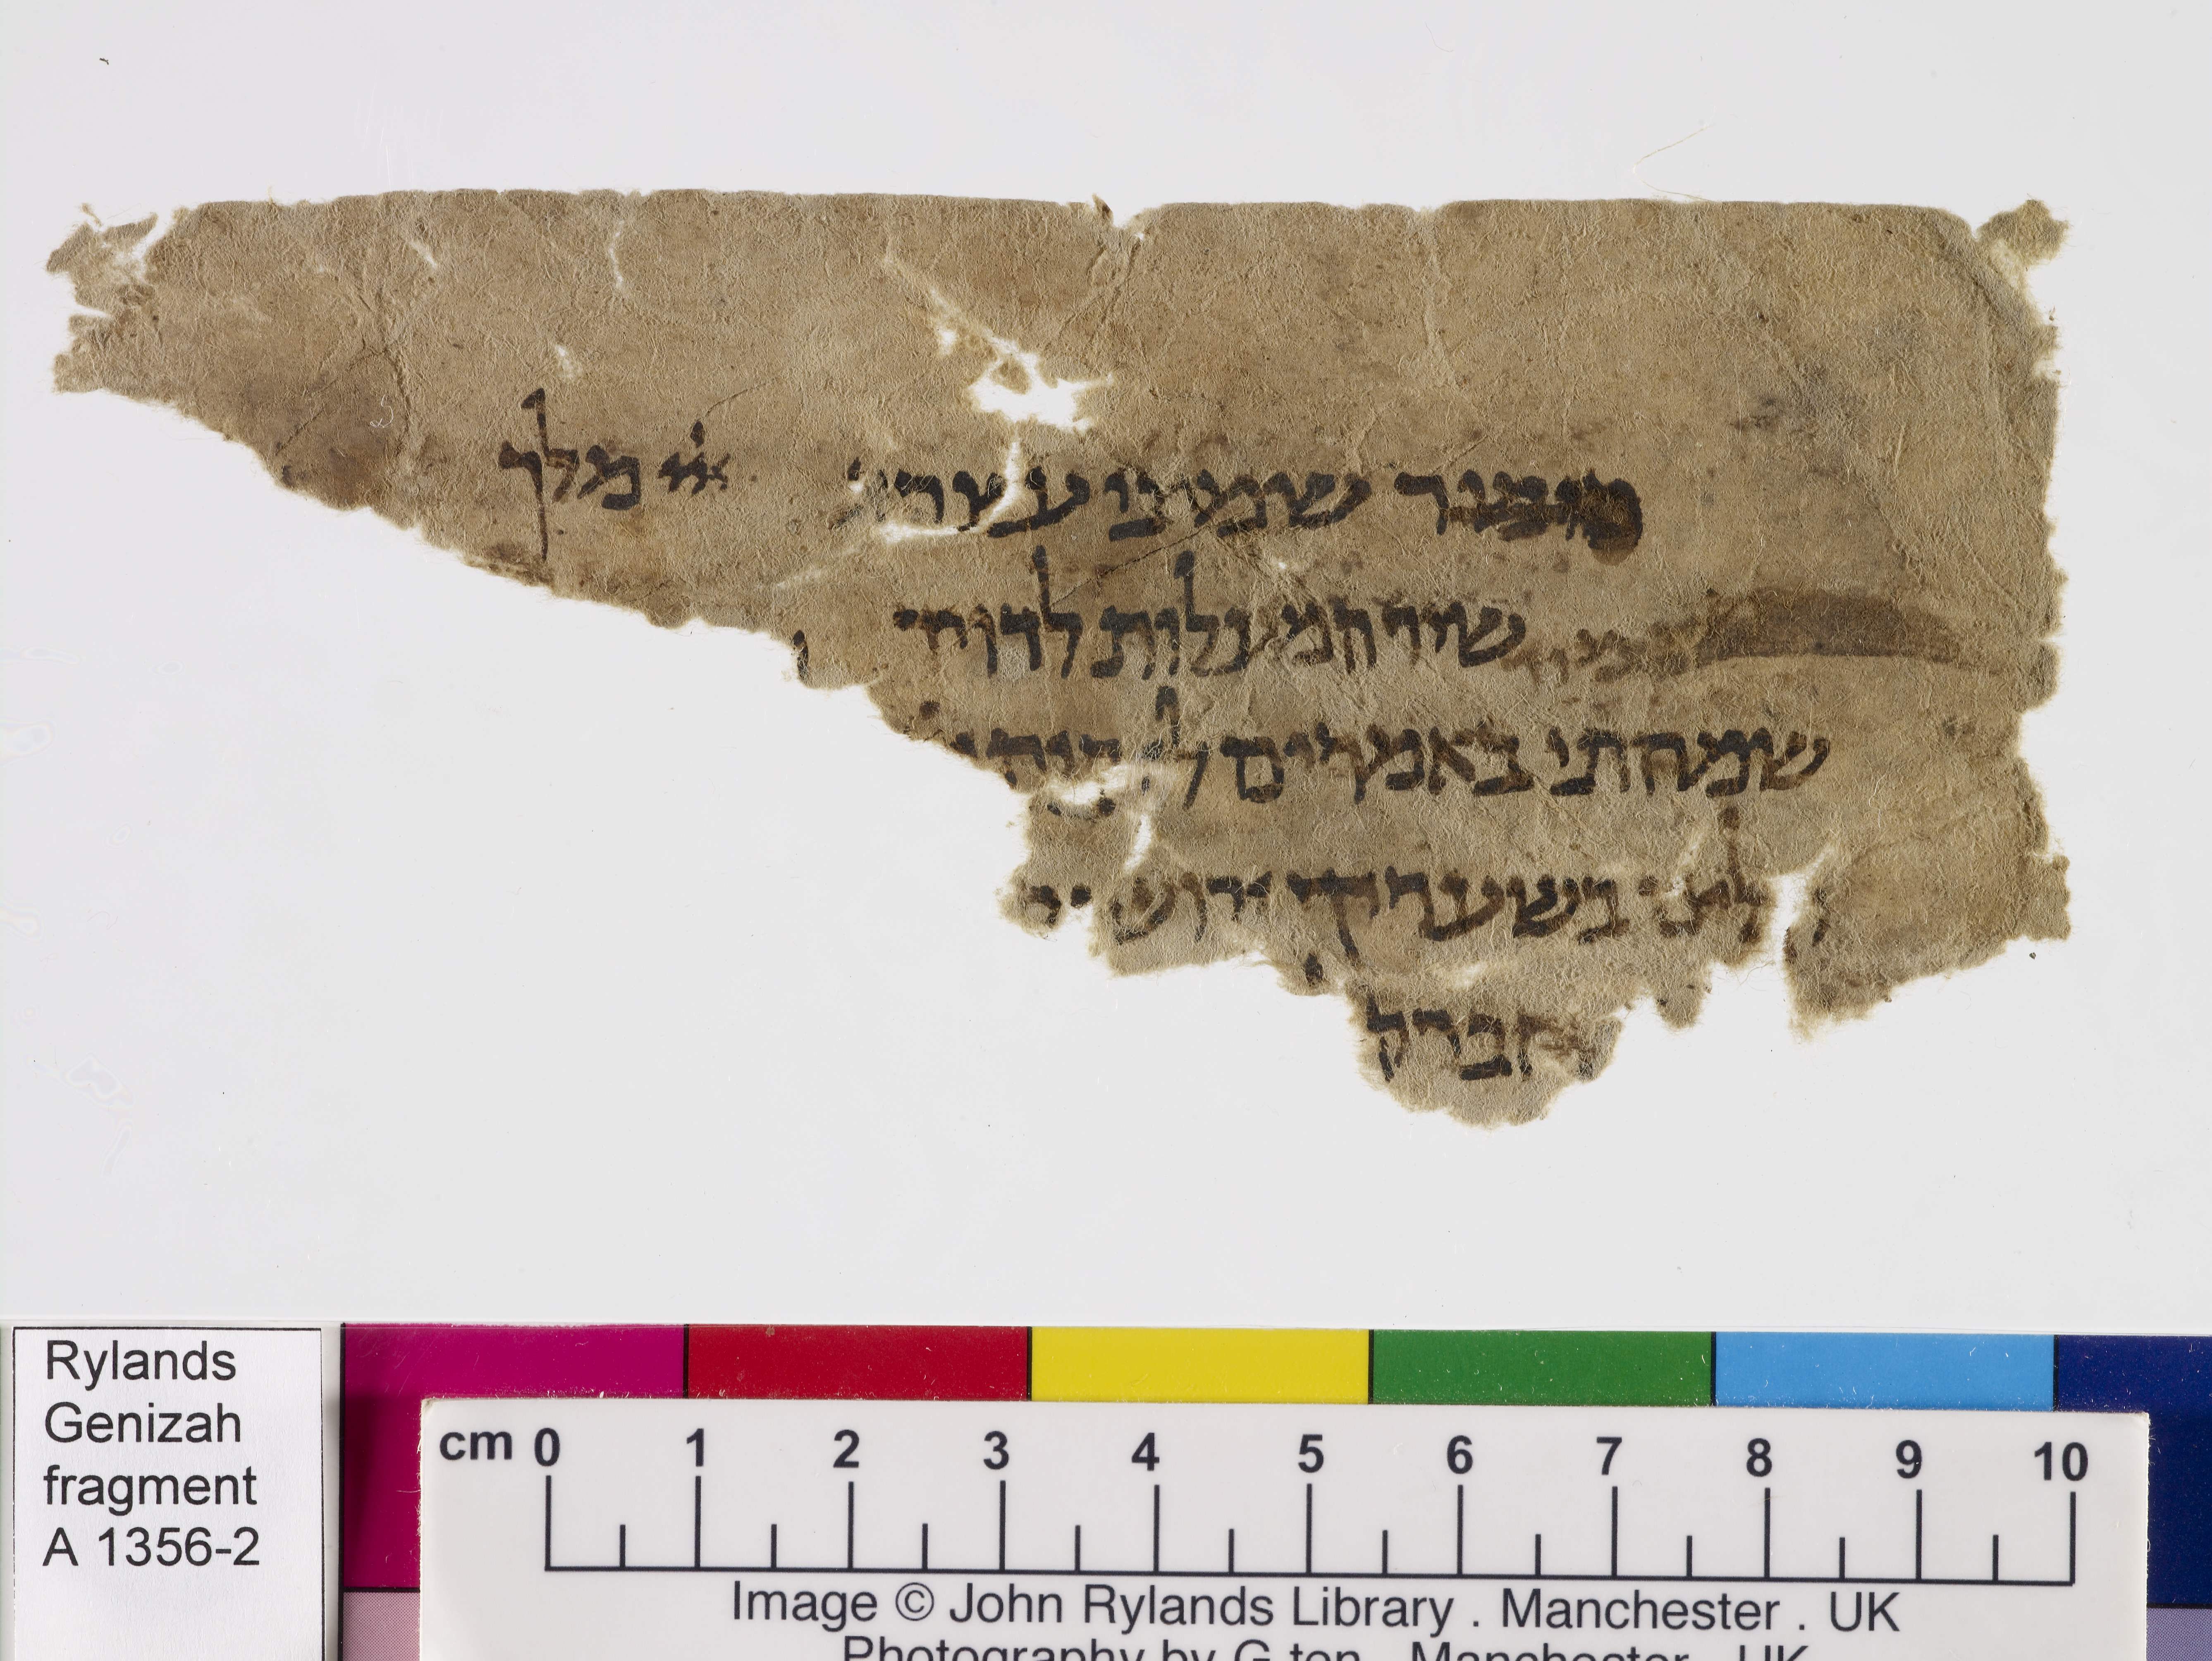 מזמור שמיני עצרת ייי מלך
שיר המעלות לדויד
שמחתי באמרים בית
בשעריך
שחברה
Rylands
Genizah
fragment
A 1356-2
cm 0 1 2 3 4 5 6 7 8 9 10
Image © John Rylands Library . Manchester . UK
Photography by G ten . Manchester . UK